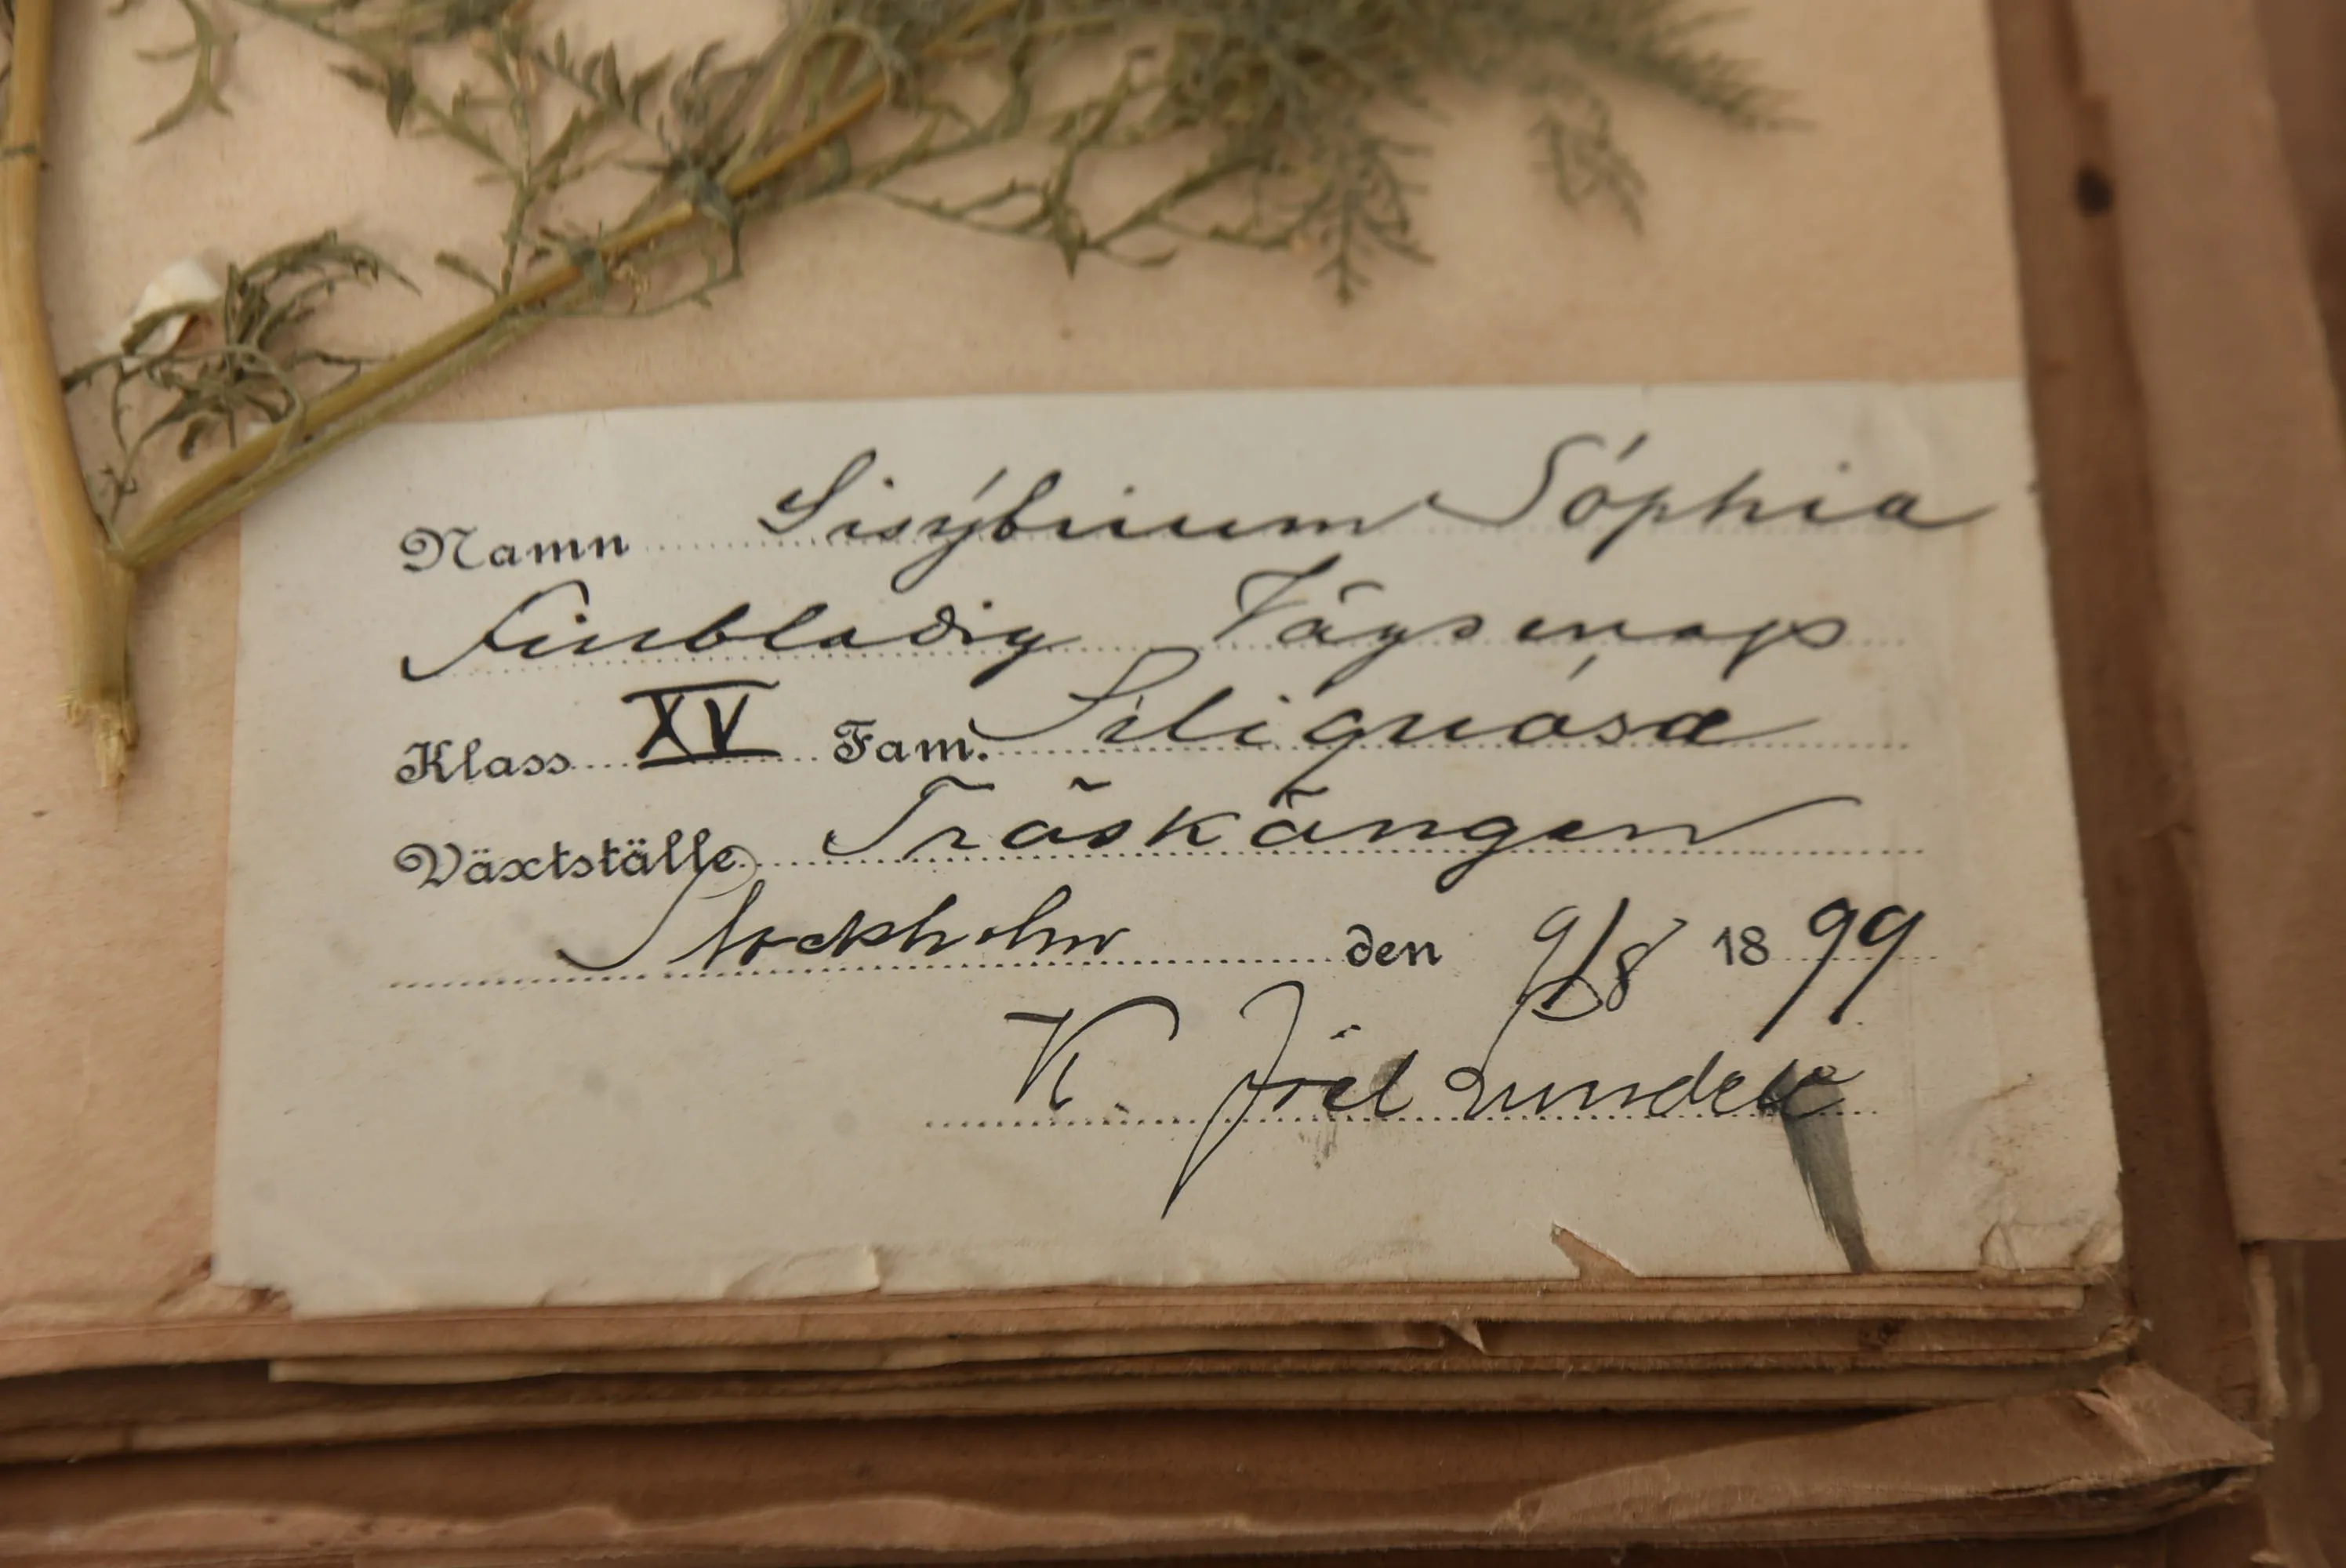 Namn Sisýbrium Sóphia
Finbladig Vägsenap
Klass XV Fam. Siliquósæ
Växtställe Träskängen
Stockholm den 9/8 1899
K Joel Lundell